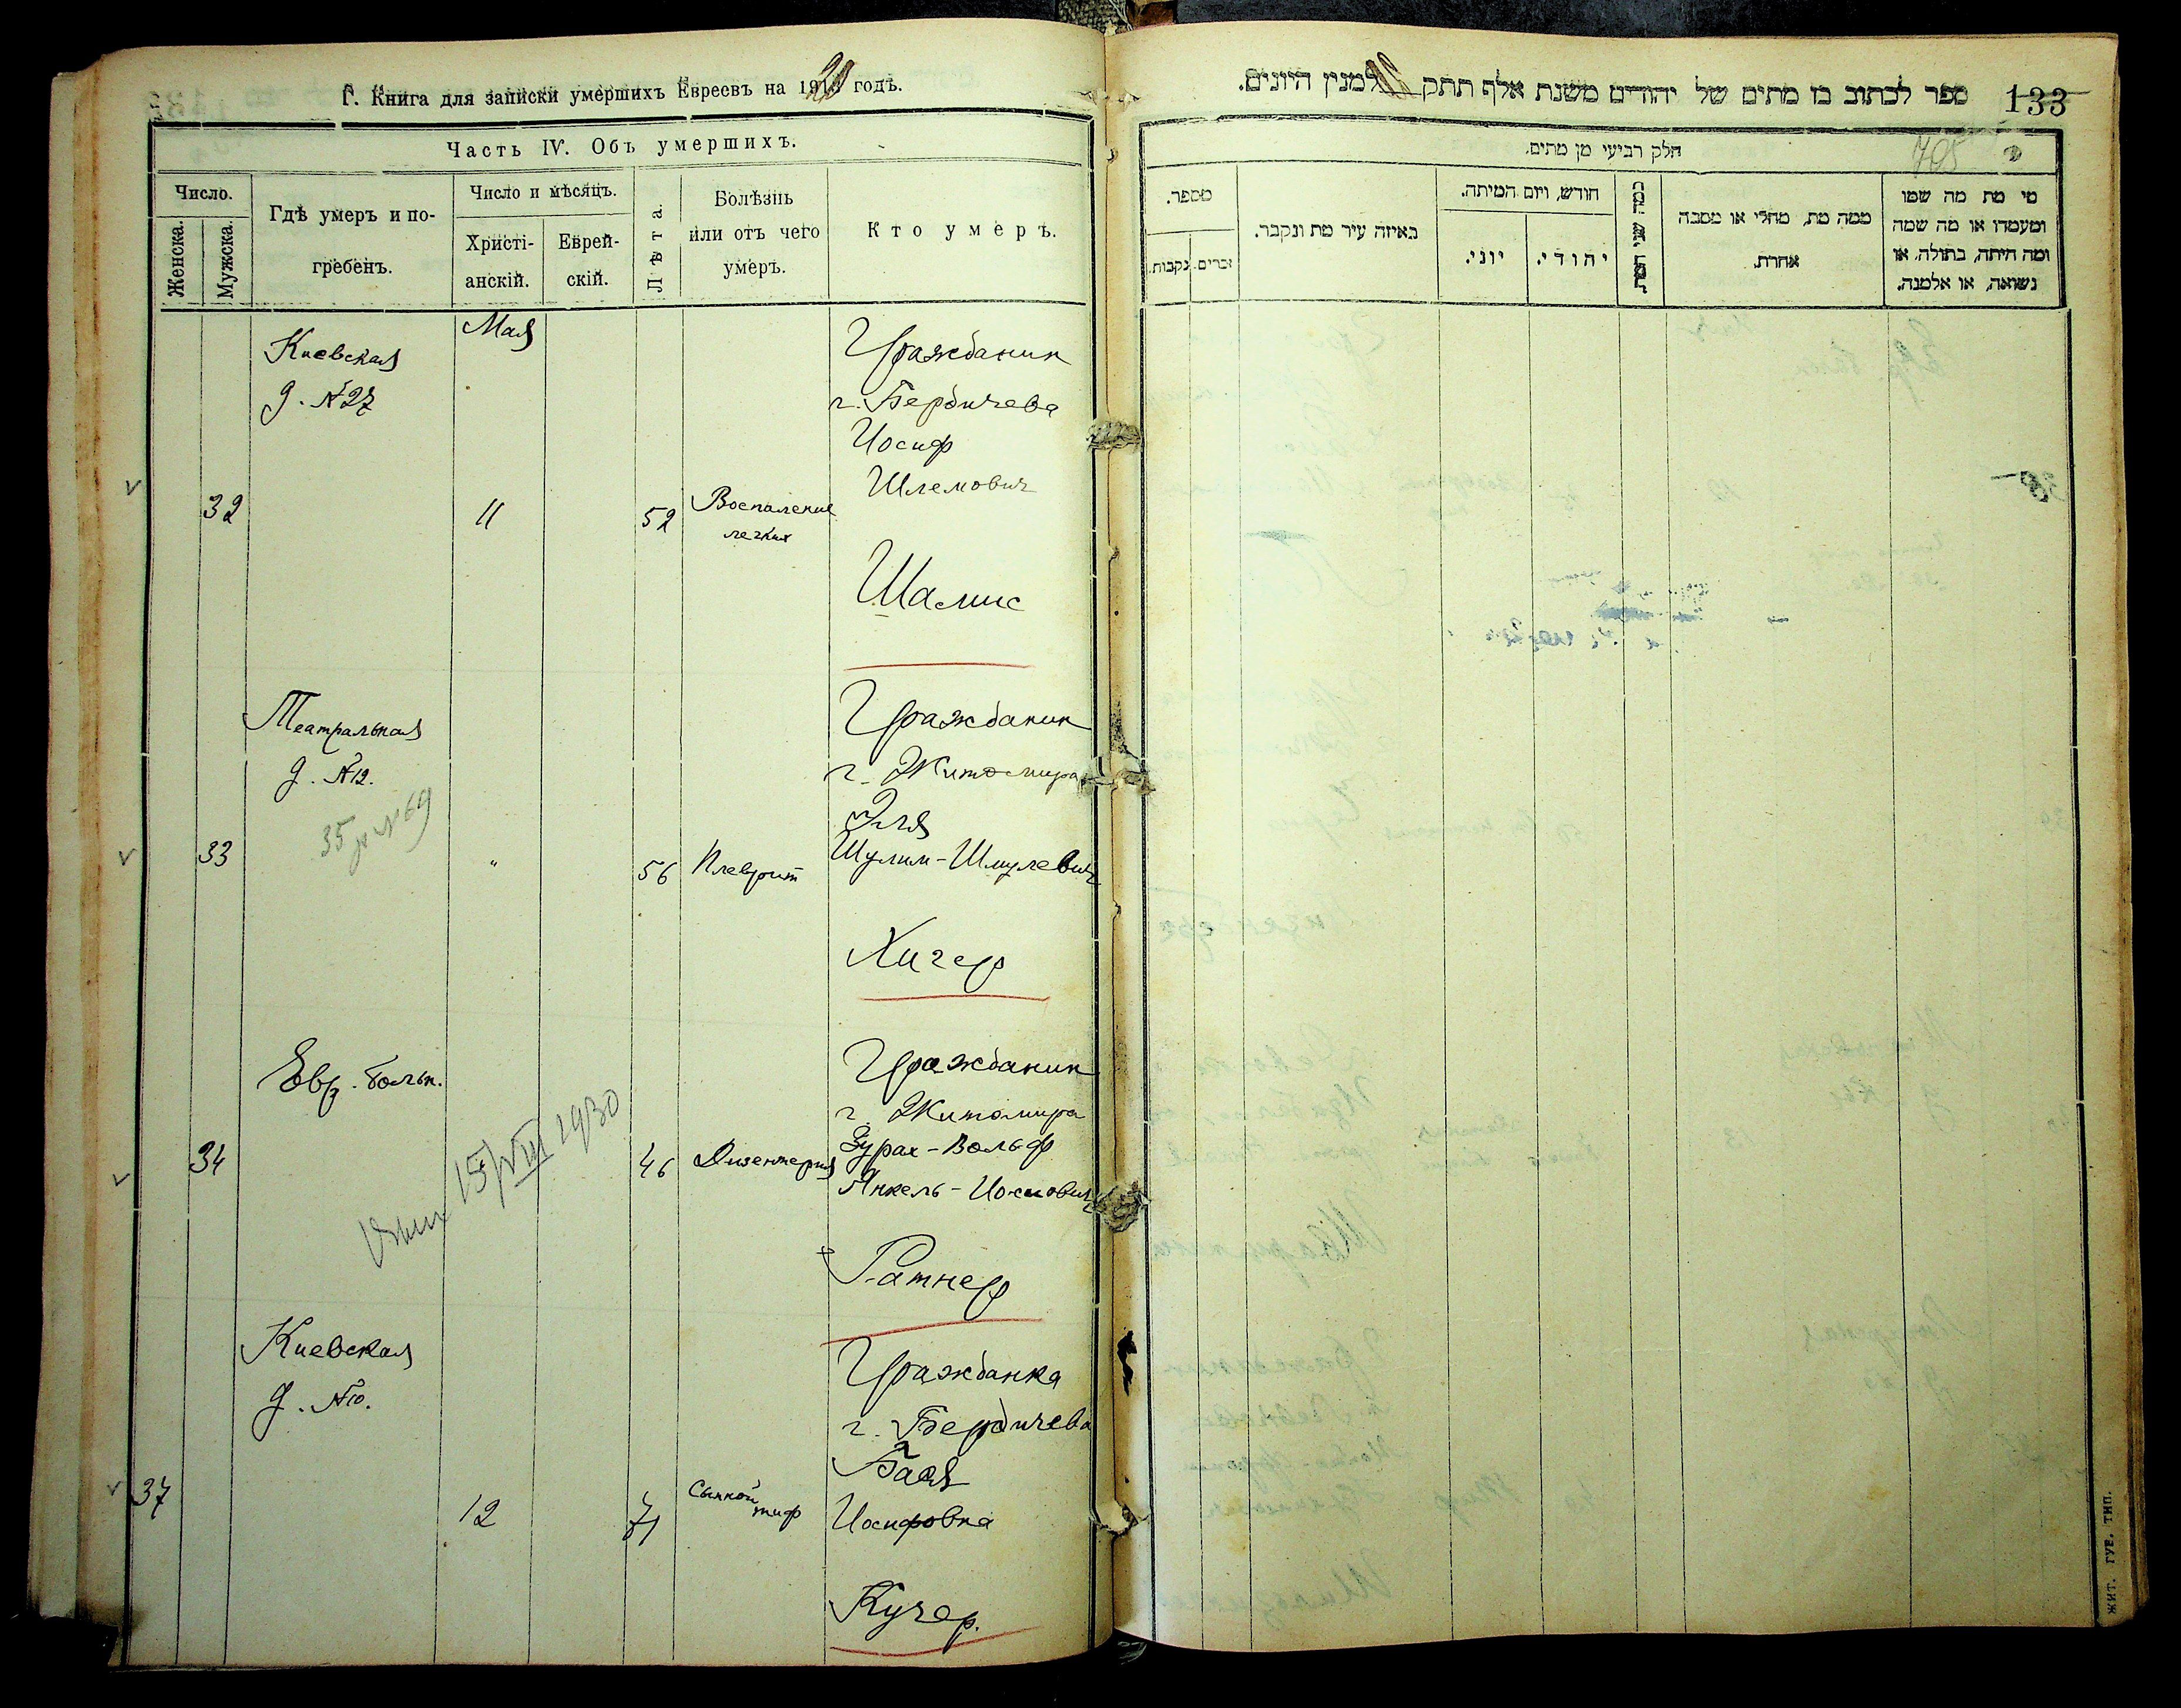 Г. Книга для записки умершихъ Евреевъ на 1920 годъ.
Часть IV. Объ умершихъ.
Число.
Женска.
Мужска.
Гдѣ умеръ и по-
гребенъ.
Число и мѣсяцъ.
Христі-
анскій.
Еврей-
скій.
Лѣта.
Болѣзнь
или отъ чего
умеръ.
Кто умеръ.
Киевская
д. №27
Мая
Гражданин
г. Бердичева
Иосиф
Шлемович
32
11
52
Воспаление
легких
Шамис
Театральная
д. №12.
Гражданин
г. Житомира
Эля
Шулим-Шмулевич
33
"
56
Плеврит
Хигер
Евр. больн.
15/VIII 1930
Гражданин
г. Житомира
Зурах-Вольф
Янкель-Иосиович
34
46
Дизентерия
Ратнер
Киевская
д. №10.
Гражданка
г. Бердичева
Бася
Иосифовна
37
12
71
Сыпной
тиф
Кучер.
ספר לכתוב בו מתים של יהודים משנת אלף תתק למנין היונים.
133
705
חלק רביעי מן מתים.
מספר.
זכרים.
נקבות.
באיזה עיר מת ונקבר.
חודש, ויום המיתה.
יוני.
יהודי.
כמה שני המת.
ממה מת, מחלי או מסבה
אחרת.
מי מת מה שמו
ומעמדו או מה שמה
ומה היתה, בתולה, או
נשואה, או אלמנה.
ЖИТ. ГУБ. ТИП.